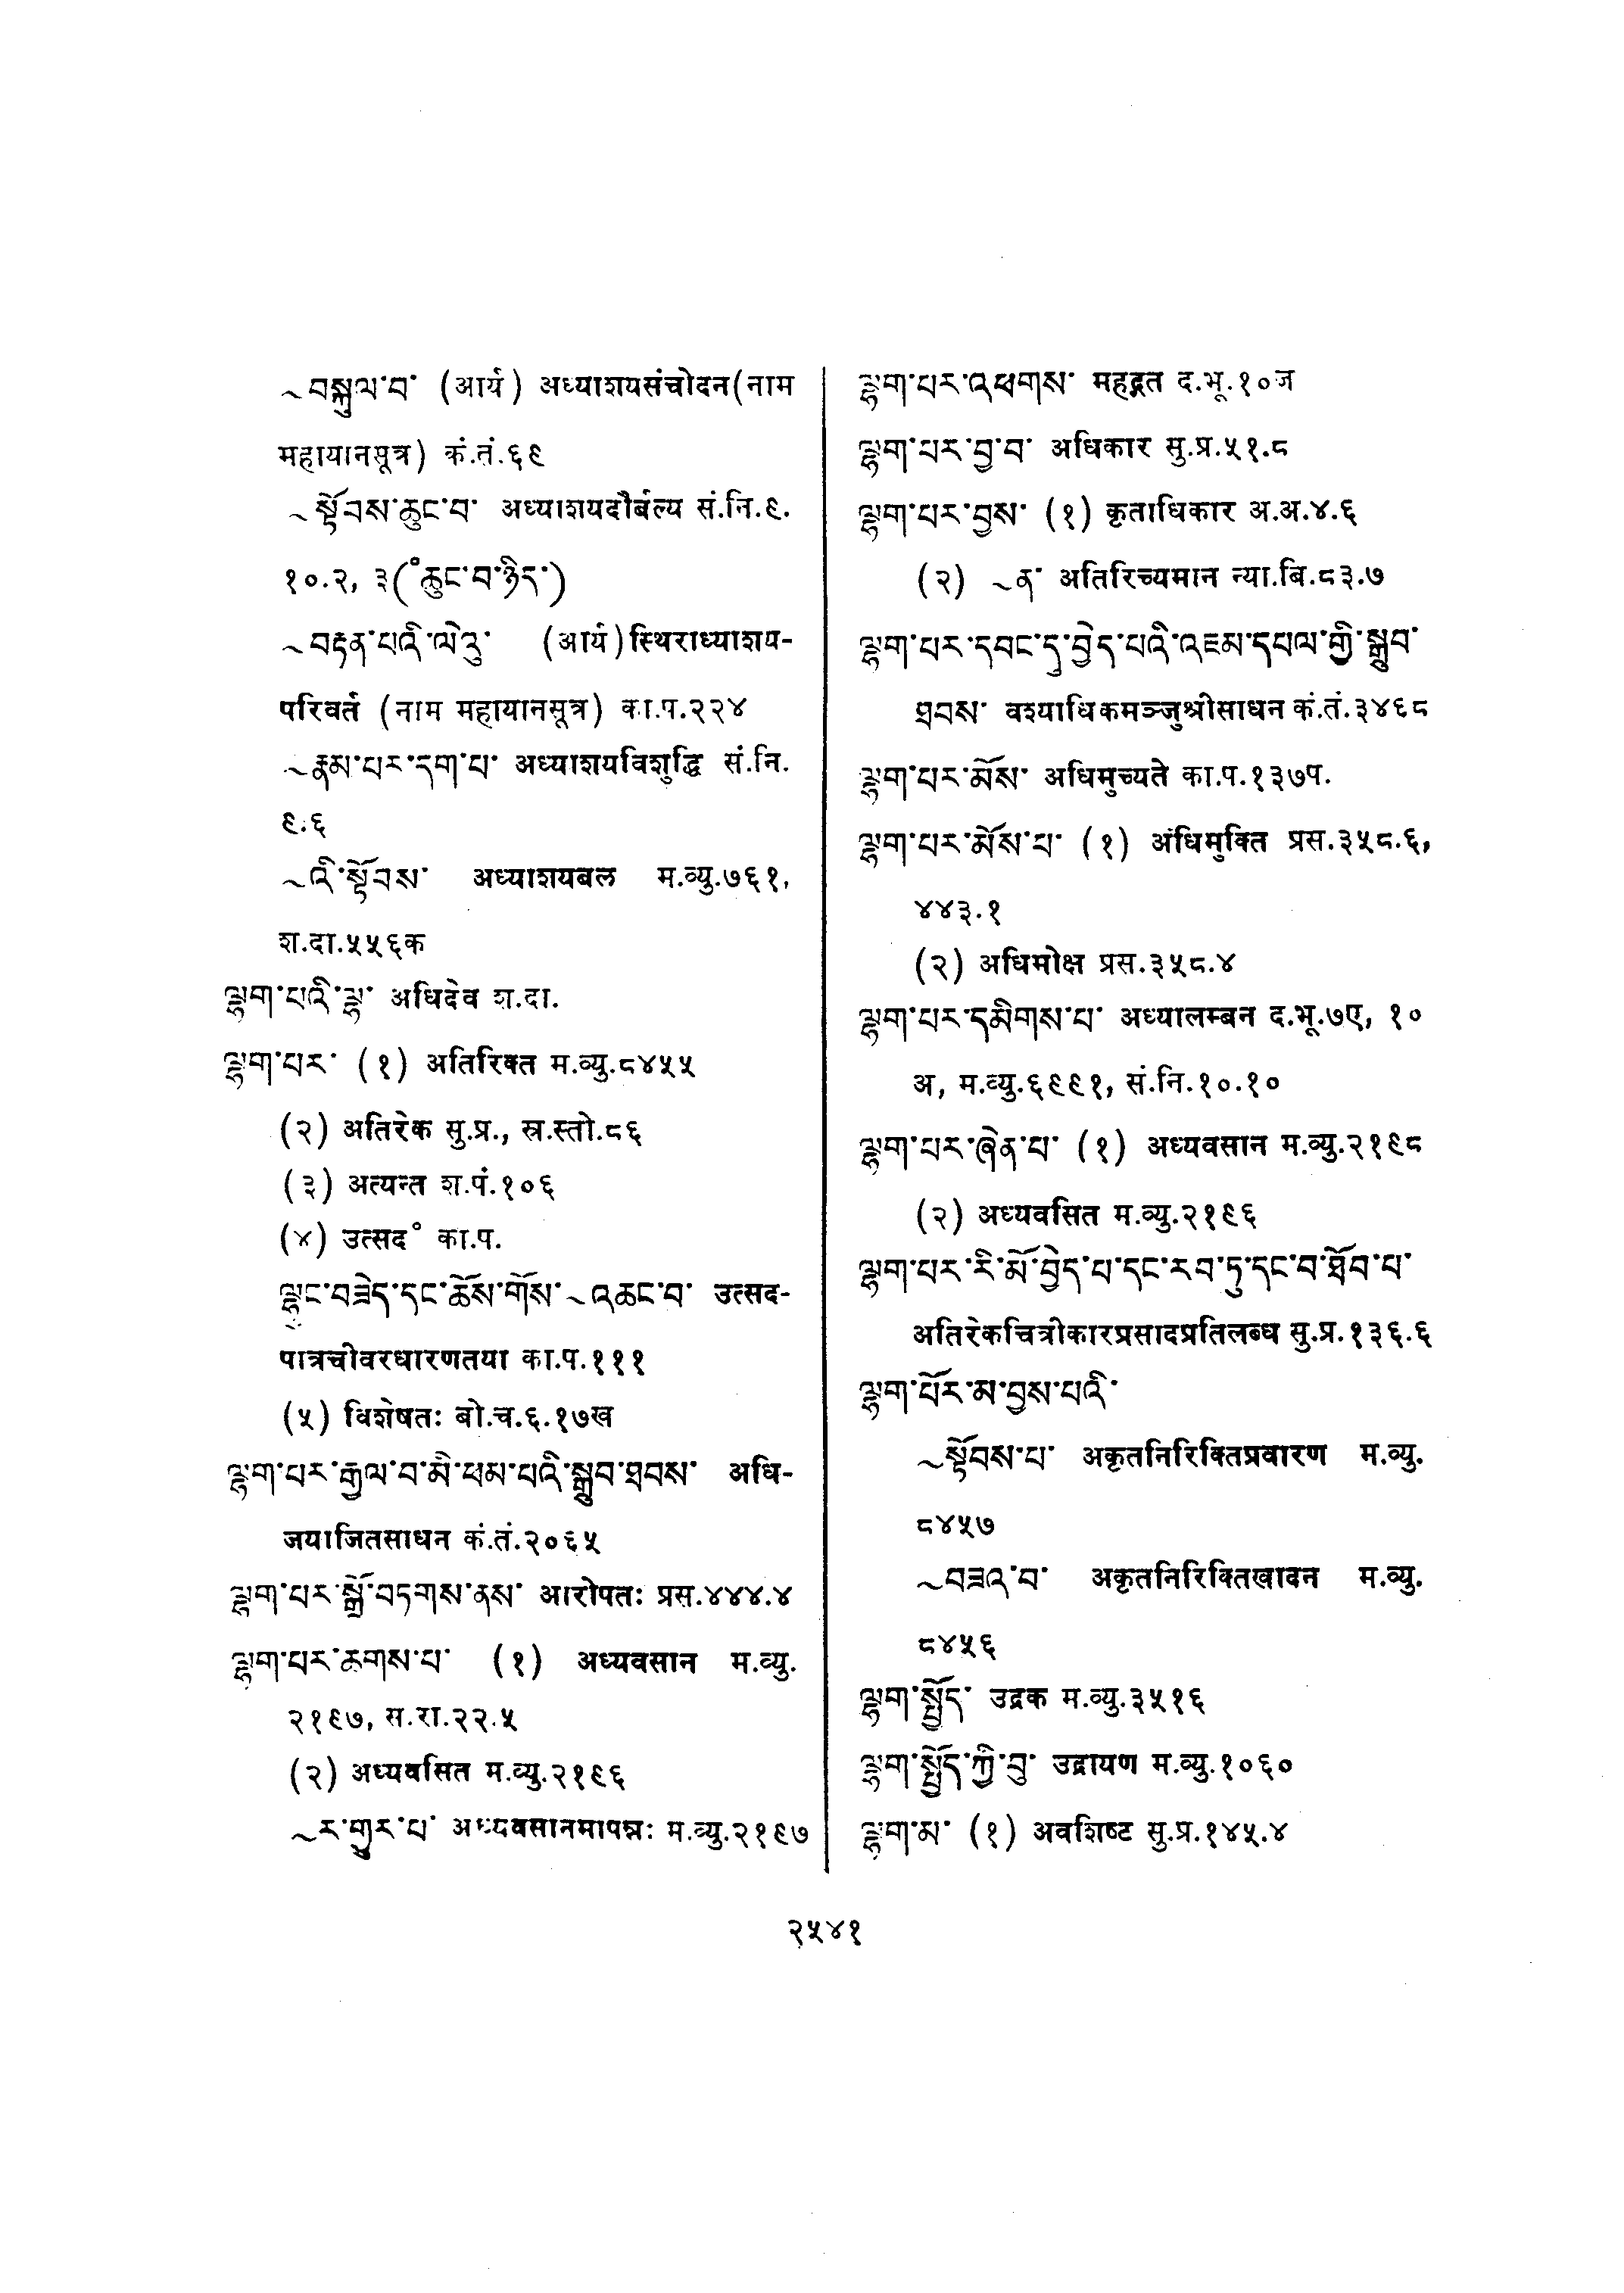 ~བསྐུལ་བ་ (आर्य) अध्याशयसंचोदन(नाम
महायानसूत्र) कं.तं.६९
~སྟོབས་ཆུང་བ་ अध्याशयदौर्बल्य सं.नि.९.
१०.२, ३(°ཆུང་བ་ཉིད་)
~བརྟན་པའི་ལེའུ་ (आर्य)स्थिराध्याशय-
परिवर्त (नाम महायानसूत्र) का.प.२२४
~རྣམ་པར་དག་པ་ अध्याशयविशुद्धि सं.नि.
९.६
~འི་སྟོབས་ अध्याशयबल म.व्यु.७६१,
श.दा.५५६क
ལྷག་པའི་ལྷ་ अधिदेव श.दा.
ལྷག་པར་ (१) अतिरिक्त म.व्यु.८४५५
(२) अतिरेक सु.प्र., स्र.स्तो.८६
(३) अत्यन्त श.पं.१०६
(४) उत्सद° का.प.
ལྷུང་བཟེད་དང་ཆོས་གོས་~འཆང་བ་ उत्सद-
पात्रचीवरधारणतया का.प.१११
(५) विशेषतः बो.च.६.१७ख
ལྷག་པར་རྒྱལ་བ་མི་ཕམ་པའི་སྒྲུབ་ཐབས་ अधि-
जयाजितसाधन कं.तं.२०६५
ལྷག་པར་སྒྲོ་བཏགས་ནས་ आरोपतः प्रस.४४४.४
ལྷག་པར་ཆགས་པ་ (१) अध्यवसान म.व्यु.
२१९७, स.रा.२२.५
(२) अध्यवसित म.व्यु.२१९६
~ར་གྱུར་པ་ अध्यवसानमापन्नः म.व्यु.२१९७
ལྷག་པར་འཕགས་ महद्गत द.भू.१०ज
ལྷག་པར་བྱ་བ་ अधिकार सु.प्र.५१.८
ལྷག་པར་བྱས་ (१) कृताधिकार अ.अ.४.६
(२) ~ན་ अतिरिच्यमान न्या.बि.८३.७
ལྷག་པར་དབང་དུ་བྱེད་པའི་འཇམ་དཔལ་གྱི་སྒྲུབ་
ཐབས་ वश्याधिकमञ्जुश्रीसाधन कं.तं.३४६८
ལྷག་པར་མོས་ अधिमुच्यते का.प.१३७प.
ལྷག་པར་མོས་པ་ (१) अधिमुक्ति प्रस.३५८.६,
४४३.१
(२) अधिमोक्ष प्रस.३५८.४
ལྷག་པར་དམིགས་པ་ अध्यालम्बन द.भू.७ए, १०
अ, म.व्यु.६९९१, सं.नि.१०.१०
ལྷག་པར་ཞེན་པ་ (१) अध्यवसान म.व्यु.२१९८
(२) अध्यवसित म.व्यु.२१९६
ལྷག་པར་རི་མོ་བྱེད་པ་དང་རབ་ཏུ་དང་བ་ཐོབ་པ་
अतिरेकचित्रीकारप्रसादप्रतिलब्ध सु.प्र.१३६.६
ལྷག་པོར་མ་བྱས་པའི་
~སྟོབས་པ་ अकृतनिरिक्तिप्रवारण म.व्यु.
८४५७
~བཟའ་བ་ अकृतनिरिक्तिखादन म.व्यु.
८४५६
ལྷག་སྤྱོད་ उद्रक म.व्यु.३५१६
ལྷག་སྤྱོད་ཀྱི་བུ་ उद्रायण म.व्यु.१०६०
ལྷག་མ་ (१) अवशिष्ट सु.प्र.१४५.४
२५४१